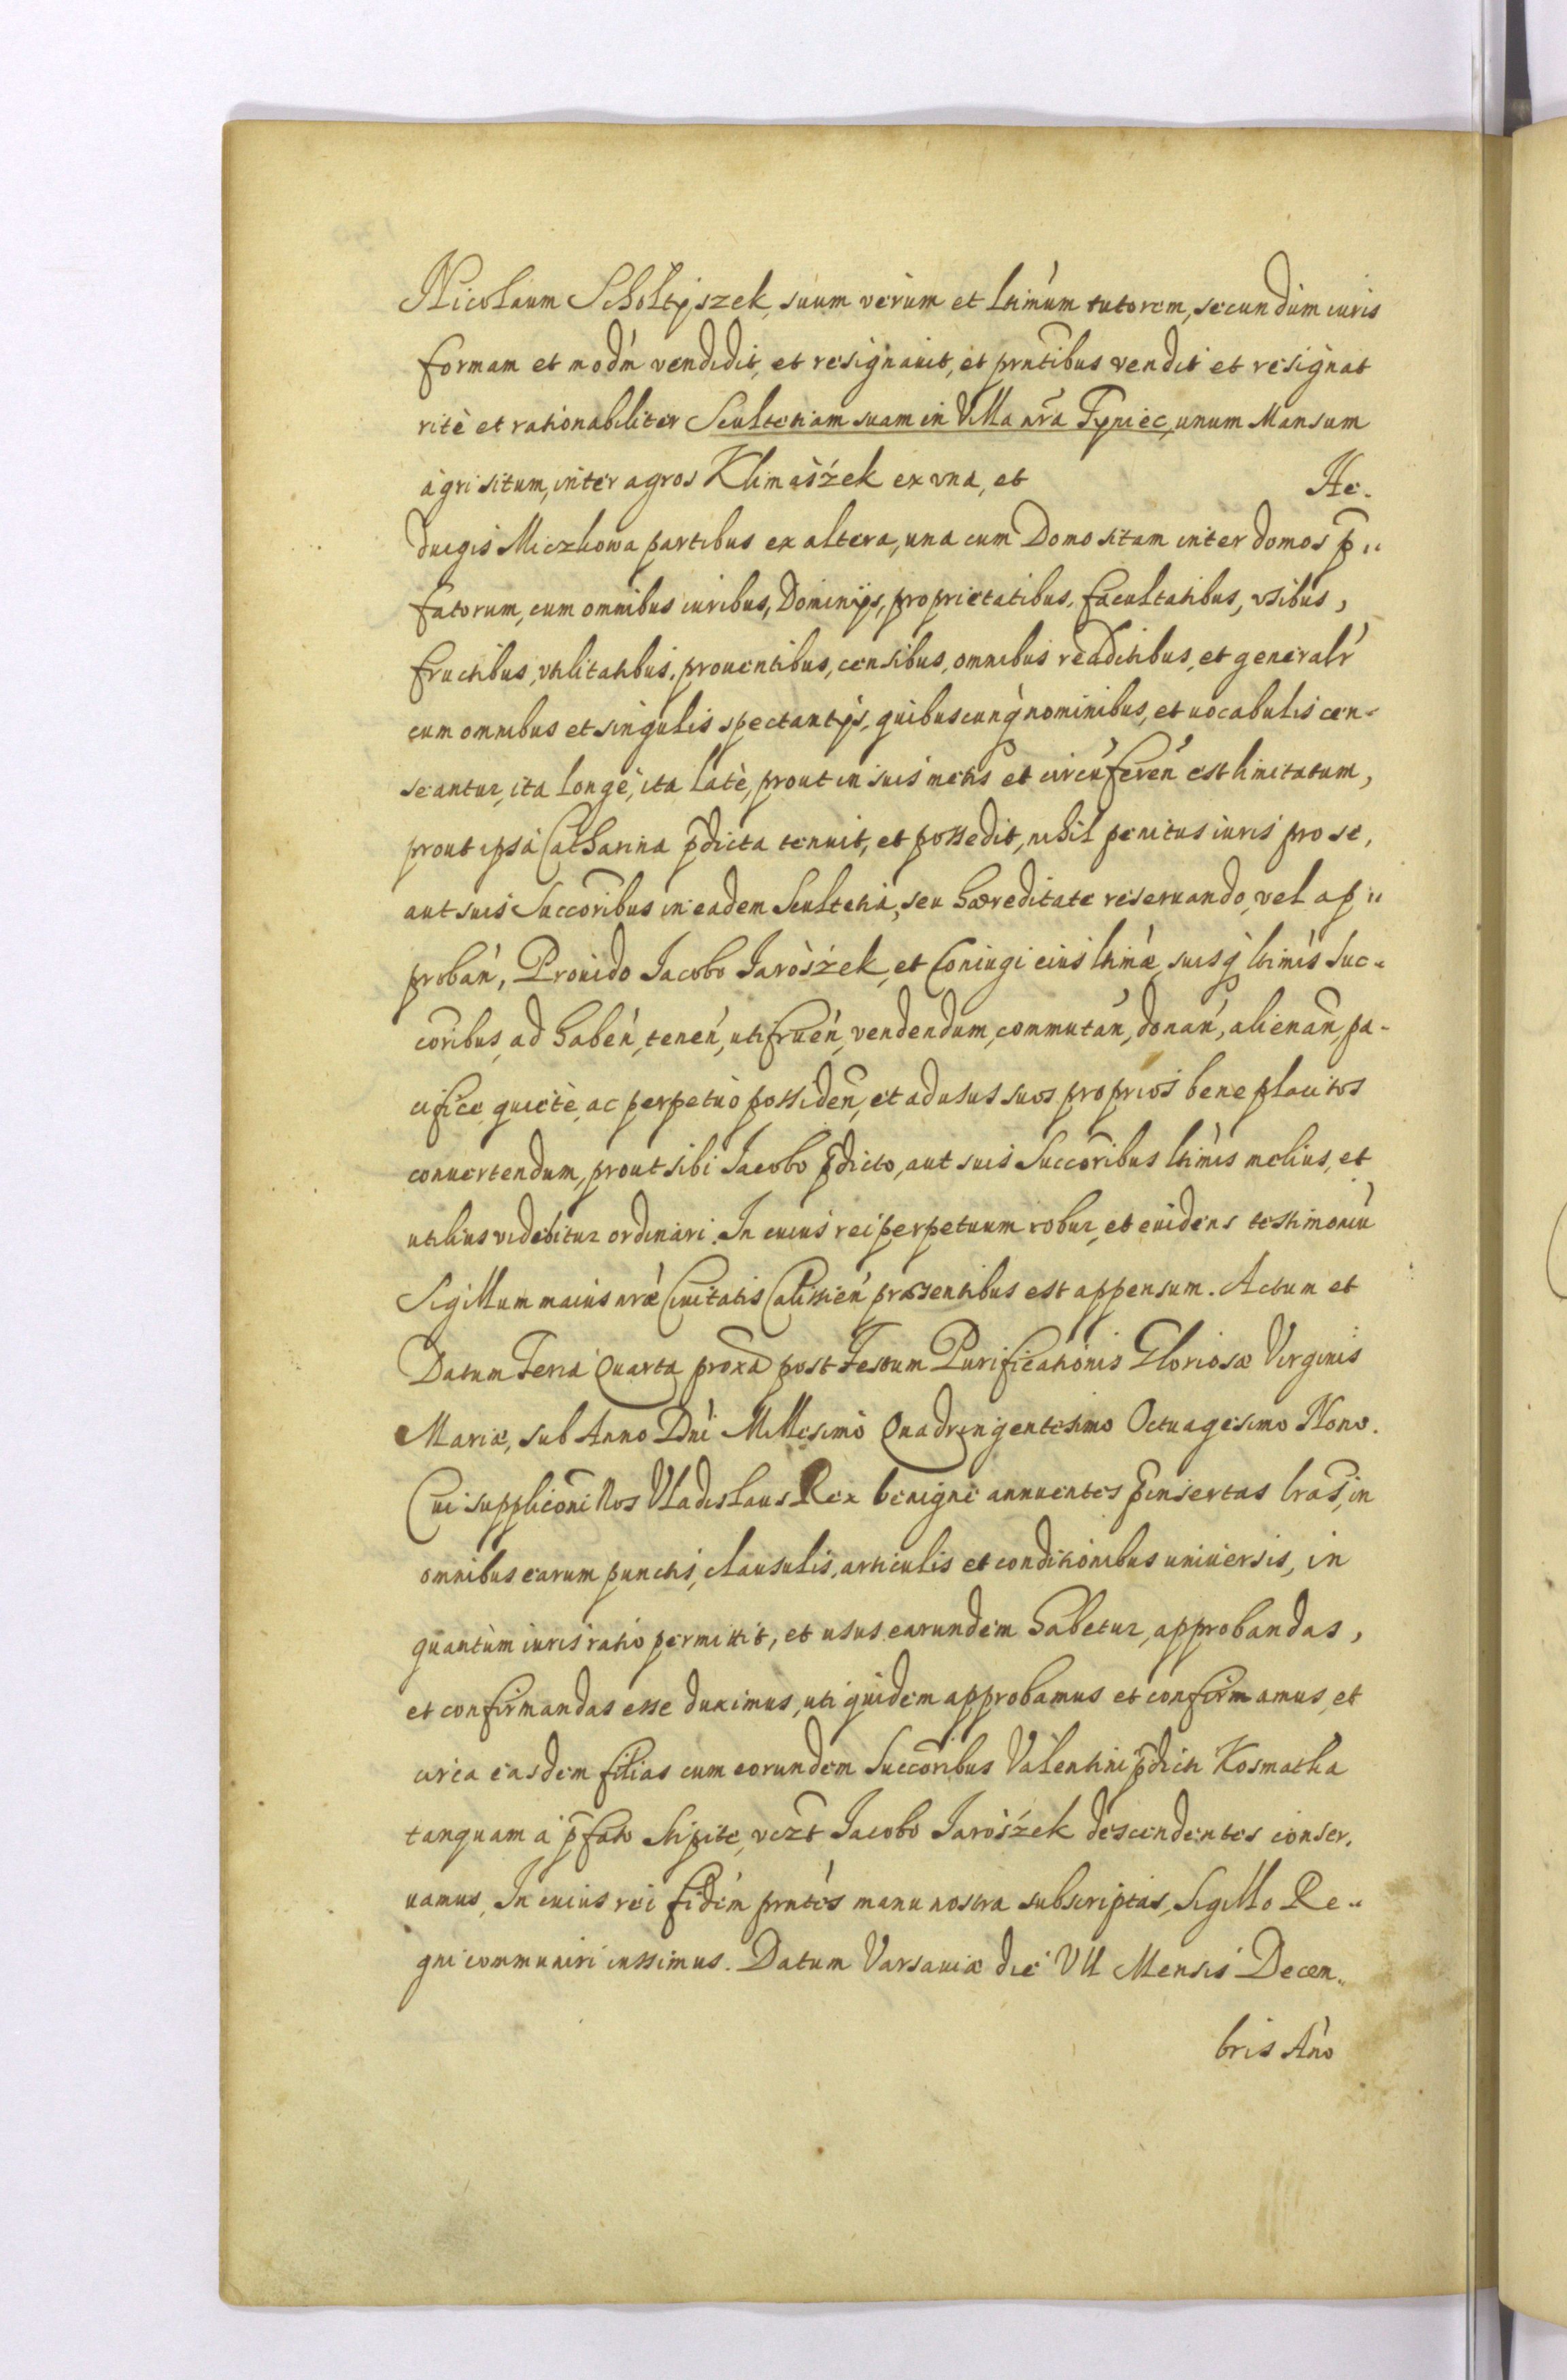 Nicolaum Scholtyszek, suum verum et ltimum tutorem, secundum iuris
formam et modm vendidit, et resignauit, et prntibus vendit et resignat
ritè et rationabiliter Scultetiam suam in Villa nra Tyniec, unum Mansum
agri situm, inter agros Klimaszek ex vna, et He-
duigis Miczkowa partibus ex altera, una cum Domo sitam inter domos p=
fatorum, cum omnibus iuribus, Dominijs, proprietatibus, facultatibus, vsibus,
fructibus, vtilitatibus, prouentibus, censibus, omnibus redditibus, et generalr
cum omnibus et singulis spectantijs, quibuscunq nominibus, et uocabulis cen-
seantur, ita longè, ita latè, prout in suis metis et circuferen est limitatum,
prout ipsa Catharina pdicta tenuit, et possedit, nihil penitus iuris pro se,
aut suis Succoribus in eadem Scultetia, seu hæreditate reseruando, vel ap=
proban, Prouido Jacobo Jaroszek, et Coniugi eius ltimæ, suisq ltimis Suc-
coribus, ad haben, tenen, utifruen, vendendum, commutan, donan, alienan, pa-
cifice, quietè, ac perpetuò possiden, et ad usus suos proprios beneplacitos
conuertendum, prout sibi Jacobo pdicto, aut suis Succoribus ltimis melius, et
utilius videbitur ordinari. In cuius rei perpetuum robur, et euidens testimoniu
Sigillum maius nræ Ciuitatis Calissien præsentibus est appensum. Actum et
Datum Feria Quarta proxa post Festum Purificationis Gloriosæ Virginis
Mariæ, sub Anno Dni Millesimo Quadringentesimo Octuagesimo Nono.
Cui supplicōni Nos Vladislaus Rex benigne annuentes pinsertas lras, in
omnibus earum punctis, clausulis, articulis et conditionibus uniuersis, in
quantum iuris ratio permittit, et usus earundem habetur, approbandas,
et confirmandas esse duximus, uti quidem approbamus et confirmamus, et
circa easdem filias cum eorundem Succoribus Valentini pdicti Kosmatka
tanquam a pfato stipite, vezt Jacobo Jaroszek descendentes conser-
uamus, In cuius rei fidem prntes manu nostra subscriptas, Sigillo Re-
gni communiri iussimus. Datum Varsauiæ die VII Mensis Decem-
bris Ano